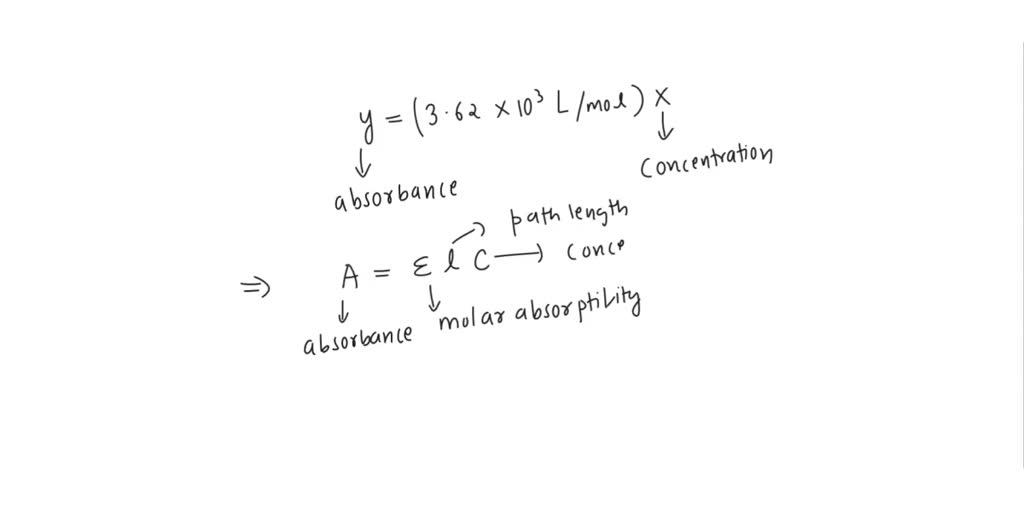 y = (3.62 × 10³ L/mol) x
absorbance
concentration
path length
⇒ A = ε l c → conc
absorbance
molar absorptility